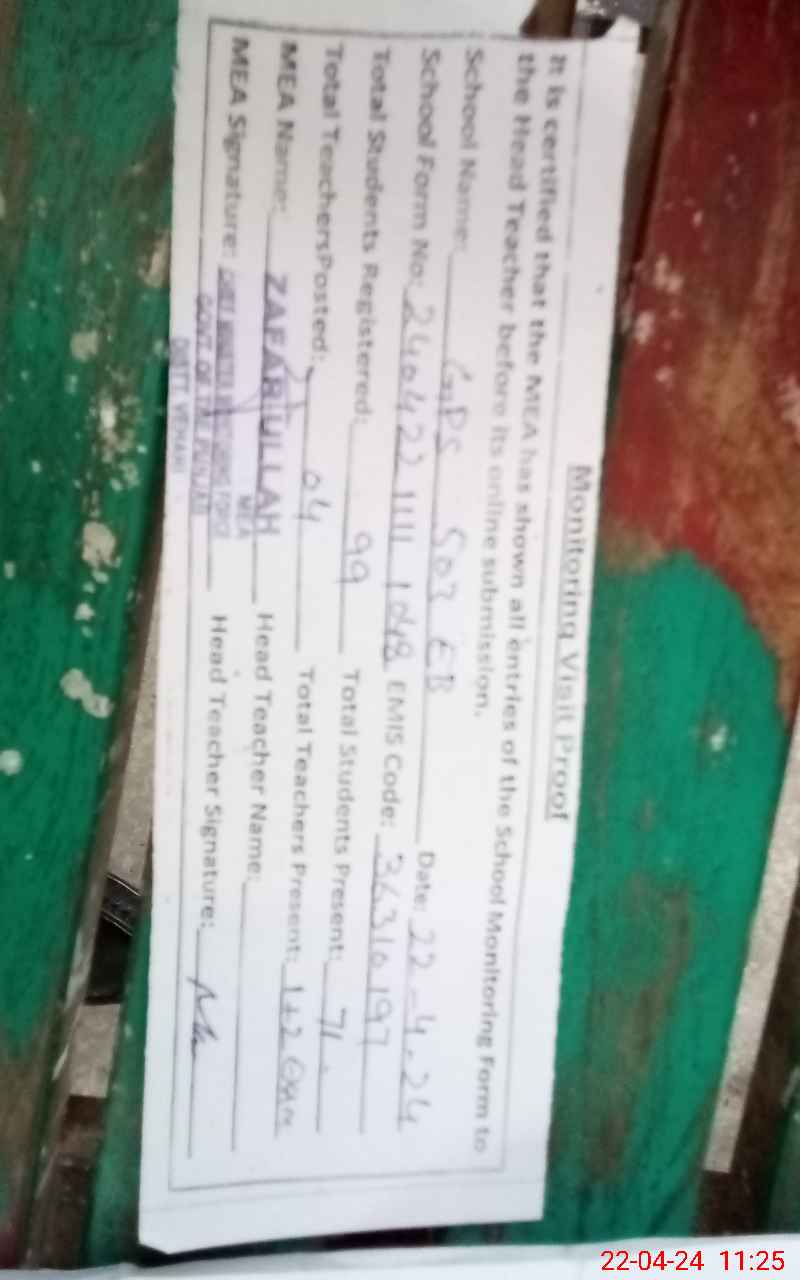 Monitoring Visit Proof
It is certified that the MEA has shown all entries of the School Monitoring Form to
the Head Teacher before its online submission.
School Name: GPS 503 EB Date: 22-4-24
School Form No: 240422 1111 1048 EMIS Code: 36310197
Total Students Registered: 99 Total Students Present: 71
Total TeachersPosted: 04 Total Teachers Present: 1+2
MEA Name: ZAFARULLAH Head Teacher Name:
MEA
MEA Signature: Head Teacher Signature:
CHIEF MINISTER MONITORING FORCE
GOVT. OF THE PUNJAB
DISTT. VEHARI
22-04-24 11:25